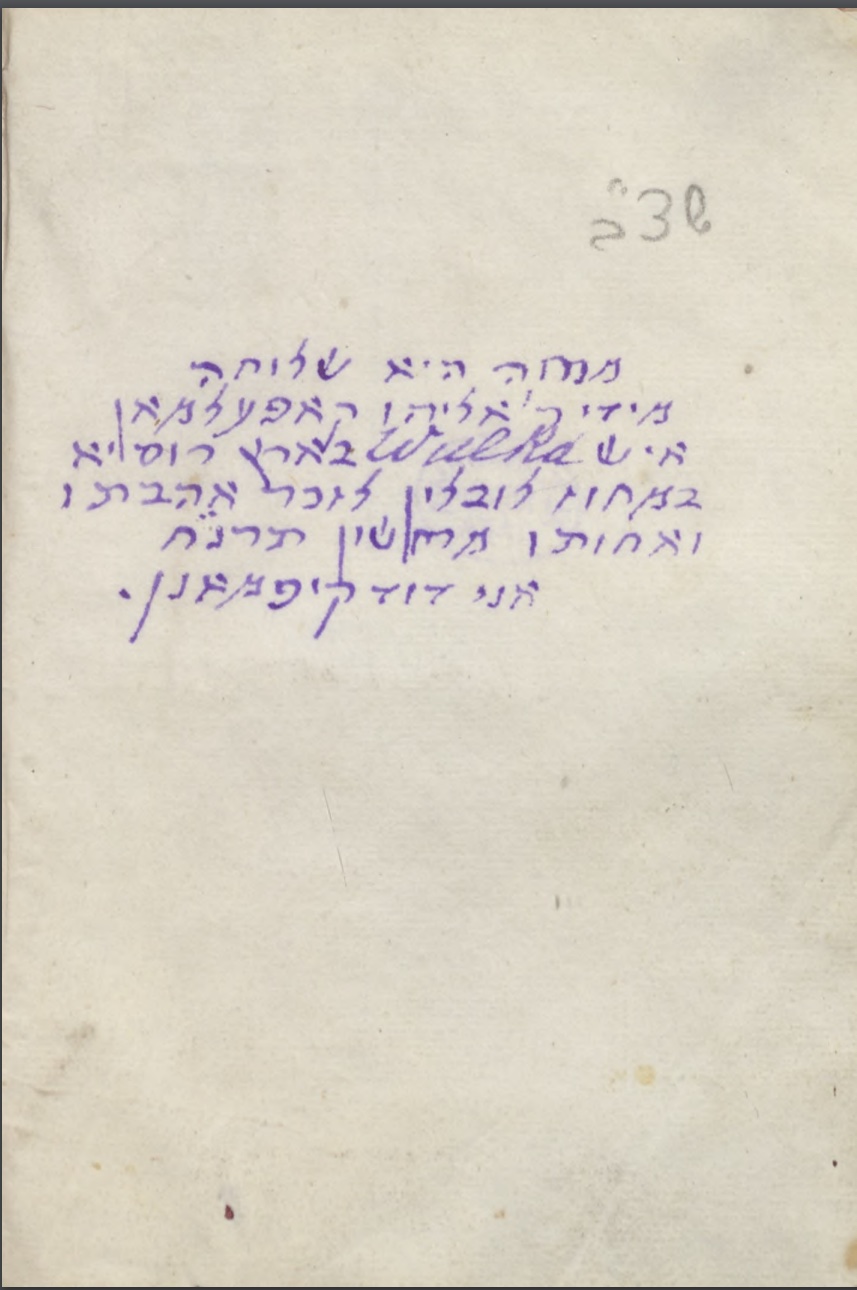 שצ״ב
מנחה היא שלוחה
מידי ר' אליהו
איש Wulka בארץ רוסיא
במחוז לובלין לזכר אהבתו
ואחותו מרחשון תרנ״ח
אני דוד קויפמאנן.